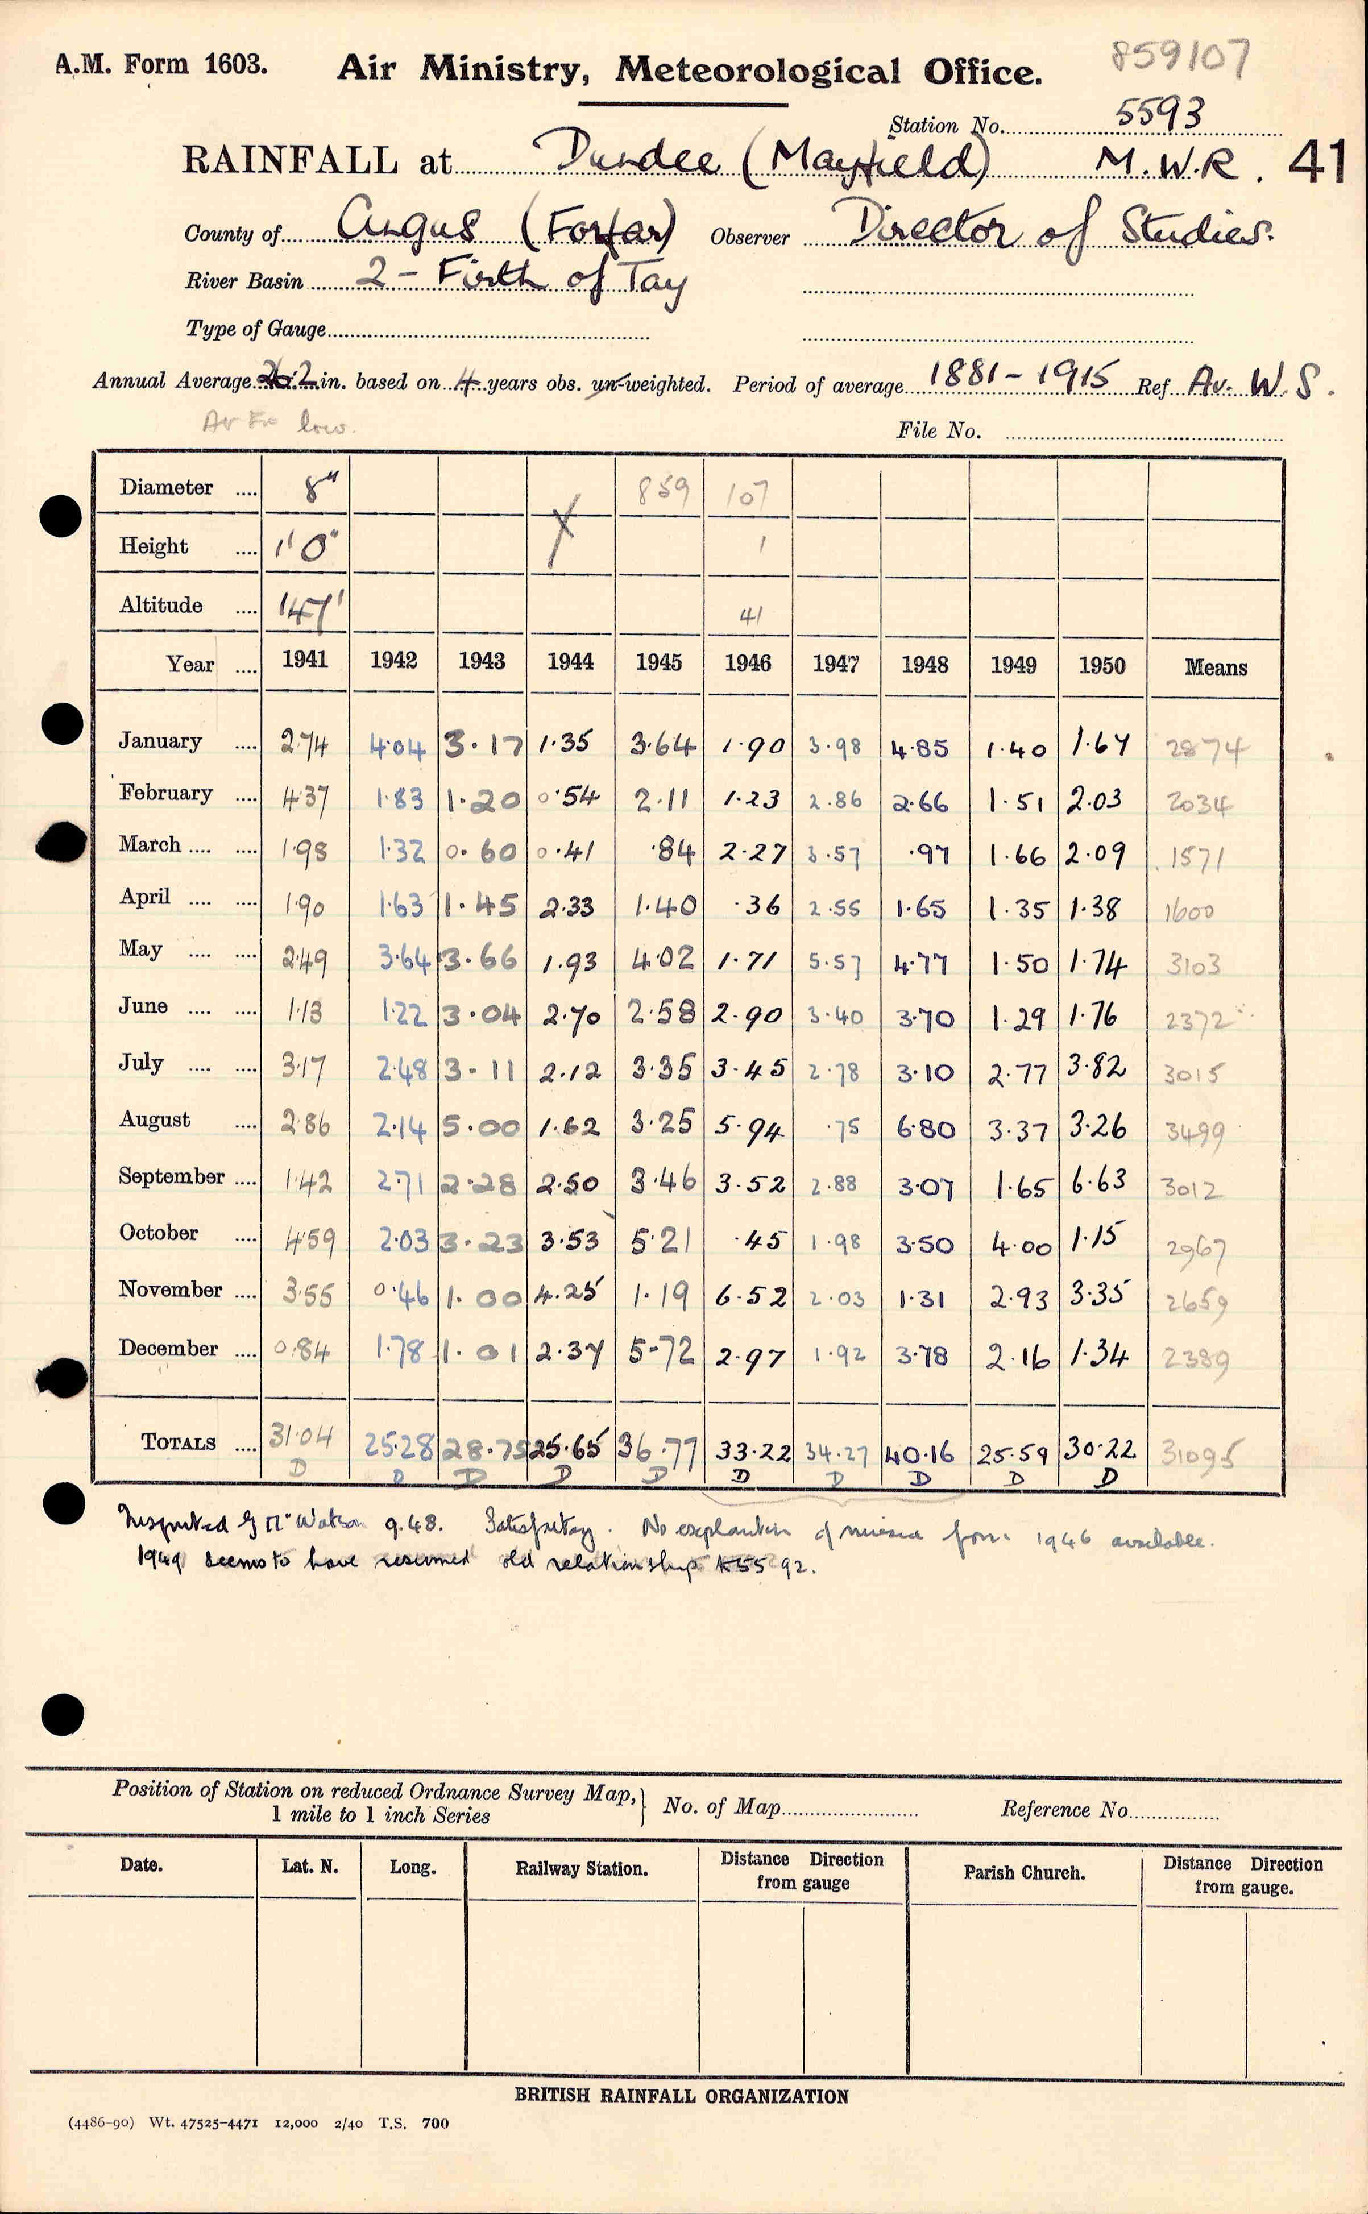 A.M. Form 1603. Air Ministry, Meteorological Office. 859107
Station No. 5593
RAINFALL at Dundee (Mayfield) M.W.R. 41
County of Angus (Forfar) Observer Director of Studies.
River Basin 2 - Firth of Tay
Type of Gauge
Annual Average in. based on 4 years obs. un-weighted. Period of average 1881-1915 Ref. Av. W.S.
Av low.
File No.
Diameter 8" 859 107
Height 1'0" 1
Altitude 147' 41
Year 1941 1942 1943 1944 1945 1946 1947 1948 1949 1950 Means
January 2.74 4.04 3.17 1.35 3.64 1.90 3.98 4.85 1.40 1.67 2874
February 4.37 1.83 1.20 0.54 2.11 1.23 2.86 2.66 1.51 2.03 2034
March 1.98 1.32 0.60 0.41 .84 2.27 3.57 .97 1.66 2.09 1571
April 1.90 1.63 1.45 2.33 1.40 .36 2.55 1.65 1.35 1.38 1600
May 2.49 3.64 3.66 1.93 4.02 1.71 5.57 4.77 1.50 1.74 3103
June 1.13 1.22 3.04 2.70 2.58 2.90 3.40 3.70 1.29 1.76 2372
July 3.17 2.48 3.11 2.12 3.35 3.45 2.78 3.10 2.77 3.82 3015
August 2.86 2.14 5.00 1.62 3.25 5.94 .75 6.80 3.37 3.26 3499
September 1.42 2.71 2.28 2.50 3.46 3.52 2.88 3.07 1.65 6.63 3012
October 4.59 2.03 3.23 3.53 5.21 .45 1.98 3.50 4.00 1.15 2967
November 3.55 0.46 1.00 4.25 1.19 6.52 2.03 1.31 2.93 3.35 2659
December 0.84 1.78 1.01 2.37 5.72 2.97 1.92 3.78 2.16 1.34 2389
TOTALS 31.04 25.28 28.75 25.65 36.77 33.22 34.27 40.16 25.59 30.22 31095
D D D D D D D D D D
Inspected by Mr Watson 9.48. Satisfactory. No explanation of increase from 1946 available.
1949 seems to have resumed old relationship 5592.
Position of Station on reduced Ordnance Survey Map, No. of Map Reference No.
1 mile to 1 inch Series
Date. Lat. N. Long. Railway Station. Distance Direction from gauge Parish Church. Distance Direction from gauge.
BRITISH RAINFALL ORGANIZATION
(4486-90) Wt. 47525-4471 12,000 2/40 T.S. 700